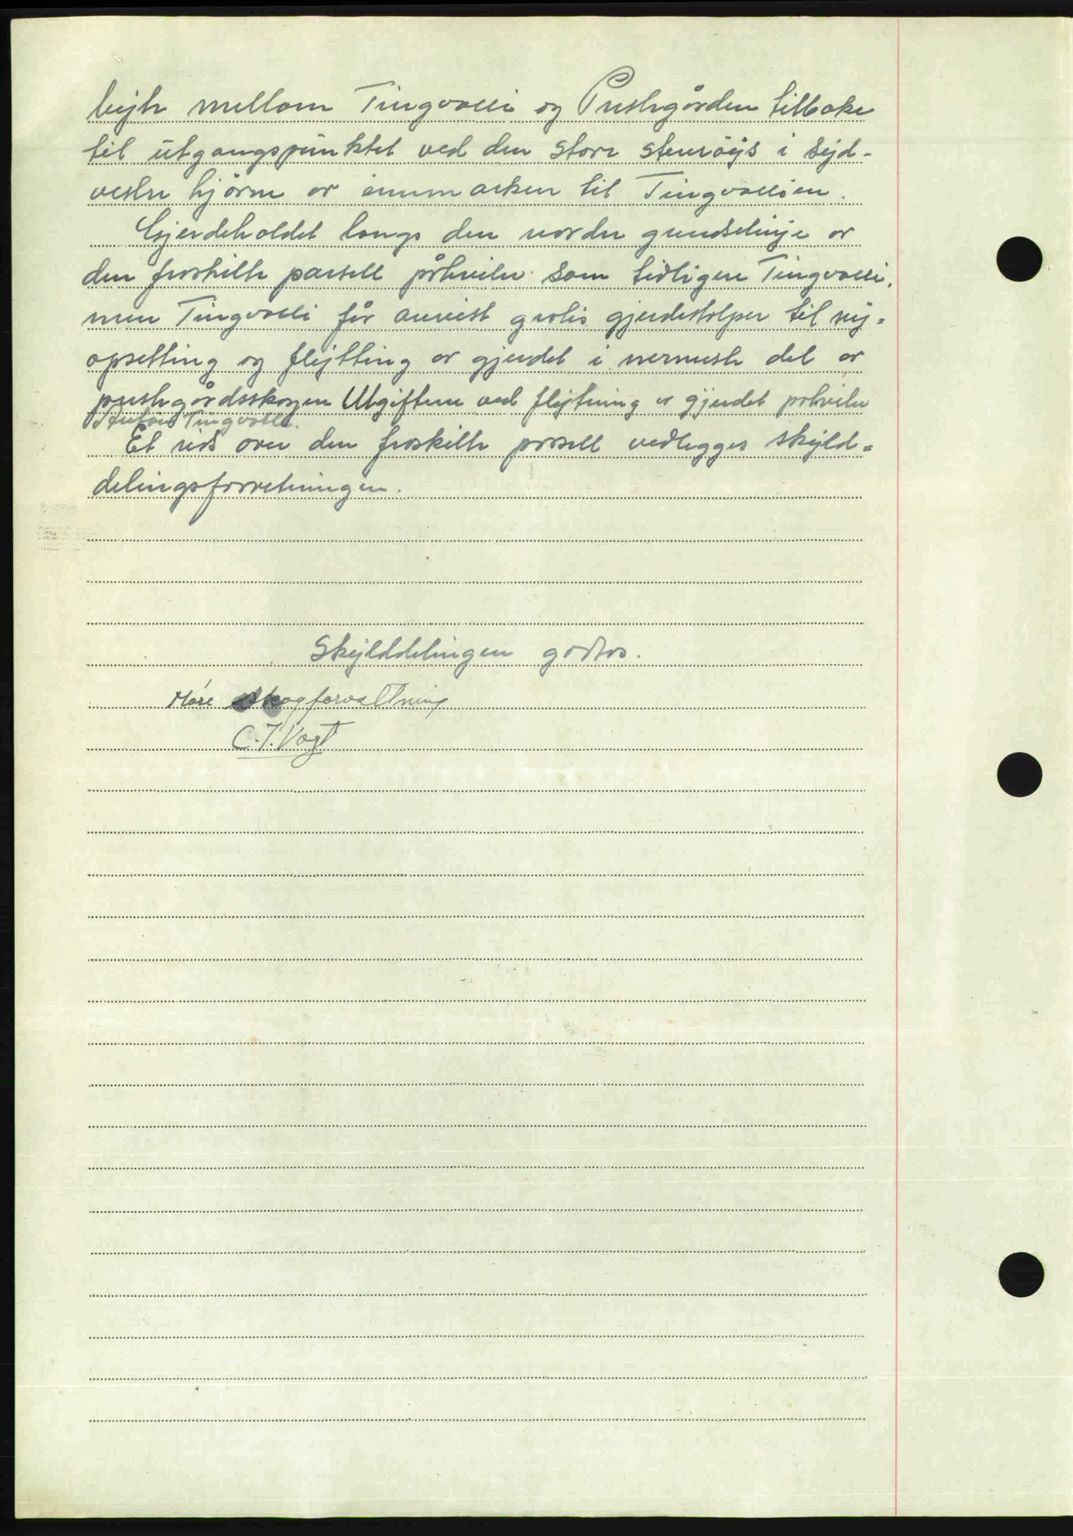 bejte mellom Tingvolli og Prestegården tilbake
til utgangspunktet ved den store stenrøys i syd-
vestre hjørne av innmarken til Tingvollien.
Gjerdeholdet langs den nordre grenselinje av
den fraskilte parsell påhviler som tidligere Tingvolli,
men Tingvolli får anvist gratis gjerdestolper til ny=
opsetting og flytting av gjerdet i nermeste del av
prestegårdsskogen Utgiftene ved flytning av gjerdet påhviler
Tingvolli.
Et rids over den fraskilte parsell vedlegges skyld=
delingsforretningen.
Skylddelingen godtas.
Møre skogforvaltning
C. J. Vogt